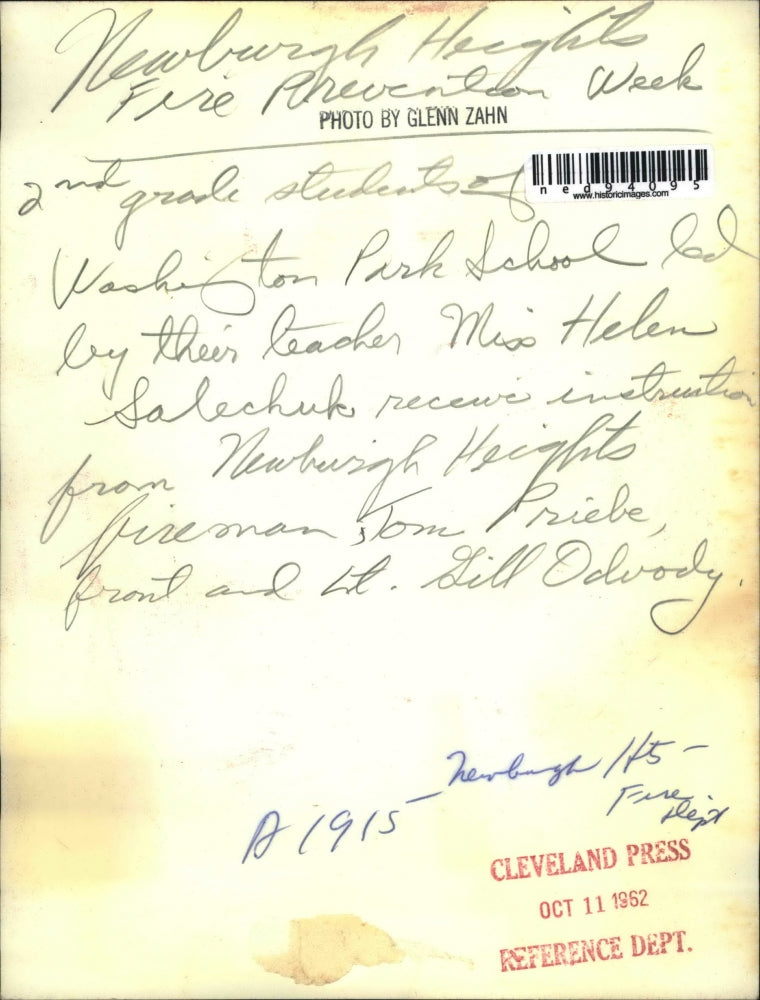 Newburgh Heights
Fire Prevention Week
PHOTO BY GLENN ZAHN
2nd grade students of
ned94095
www.historicimages.com
Washington Park School led
by their teacher Miss Helen
Salechuk receive instruction
from Newburgh Heights
fireman, Tom Priebe,
front and Lt. Bill Odvody.
Newburgh Hts -
Fire Dept
A 1915
CLEVELAND PRESS
OCT 11 1962
REFERENCE DEPT.